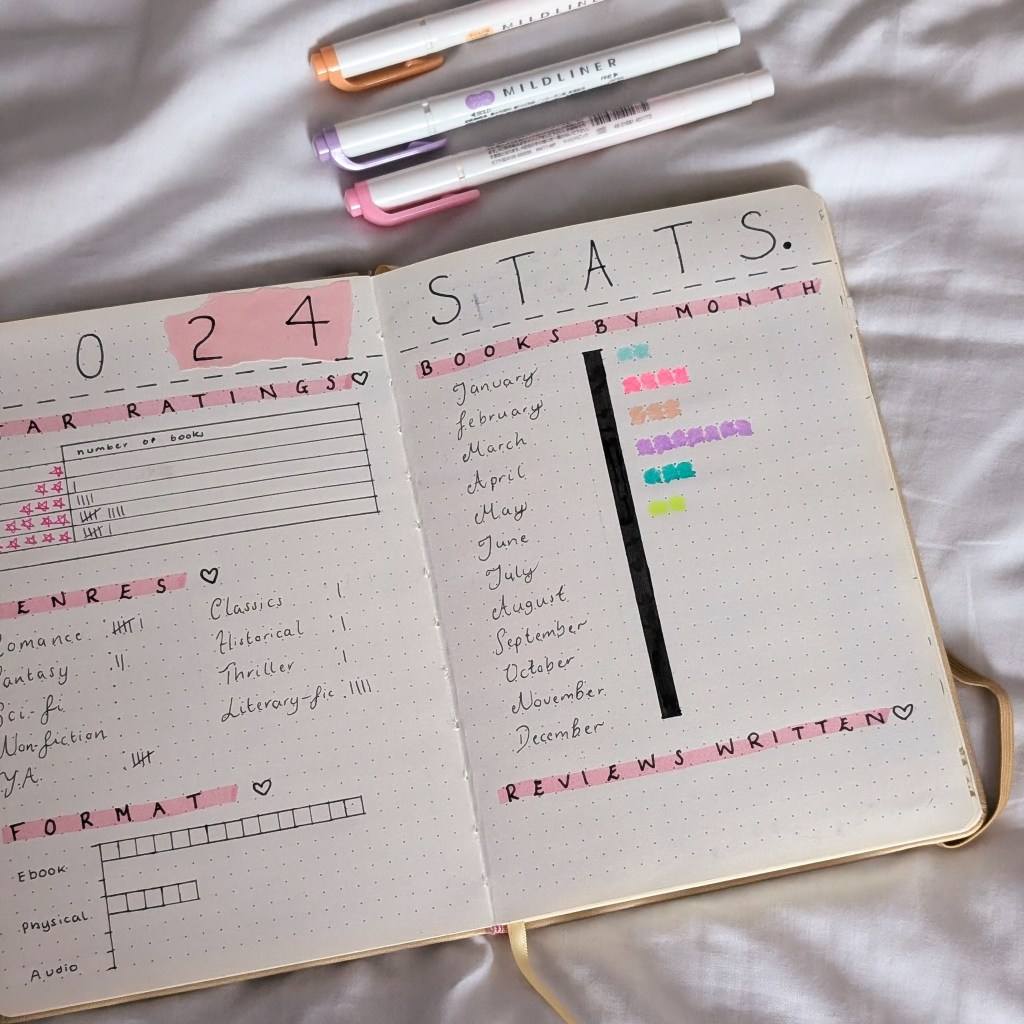 MILDLINER
MILDLINER
024
STATS.
AR RATINGS
number of books
ENRES
omance
antasy
Sci-fi
Non-fiction
Y.A.
Classics
Historical
Thriller
Literary-fic
FORMAT
Ebook
Physical
Audio
BOOKS BY MONTH
January
february
March
April
May
June
July
August
September
October
November
December
REVIEWS WRITTEN